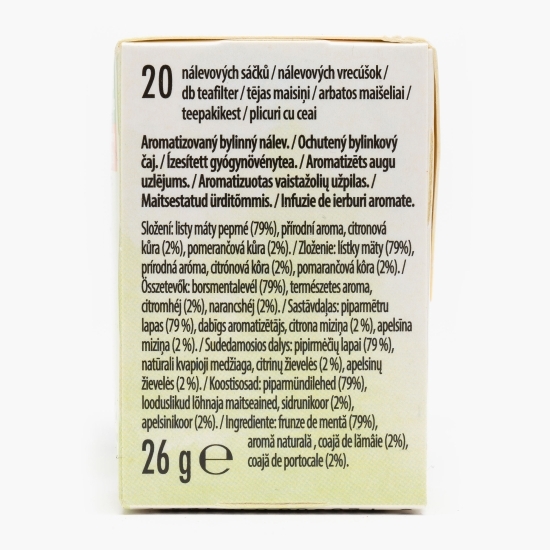 20 nálevových sáčků / nálevových vrecúšok /
db teafilter / tējas maisiņi / arbatos maišeliai /
teepakikest / plicuri cu ceai
Aromatizovaný bylinný nálev. / Ochutený bylinkový
čaj. / Ízesített gyógynövénytea. / Aromatizēts augu
uzlējums. / Aromatizuotas vaistažolių užpilas. /
Maitsestatud ürditõmmis. / Infuzie de ierburi aromate.
Složení: listy máty peprné (79%), přírodní aroma, citronová
kůra (2%), pomerančová kůra (2%). / Zloženie: lístky mäty (79%),
prírodná aróma, citrónová kôra (2%), pomarančová kôra (2%). /
Összetevők: borsmentalevél (79%), természetes aroma,
citromhéj (2%), narancshéj (2%). / Sastāvdaļas: piparmētru
lapas (79 %), dabīgs aromatizētājs, citrona miziņa (2 %), apelsīna
miziņa (2 %). / Sudedamosios dalys: pipirmėčių lapai (79 %),
natūrali kvapioji medžiaga, citrinų žievelės (2 %), apelsinų
žievelės (2 %). / Koostisosad: piparmündilehed (79%),
looduslikud lõhnaja maitseained, sidrunikoor (2%),
apelsinikoor (2%). / Ingrediente: frunze de mentă (79%),
aromă naturală , coajă de lămâie (2%),
coajă de portocale (2%).
26 g ℮